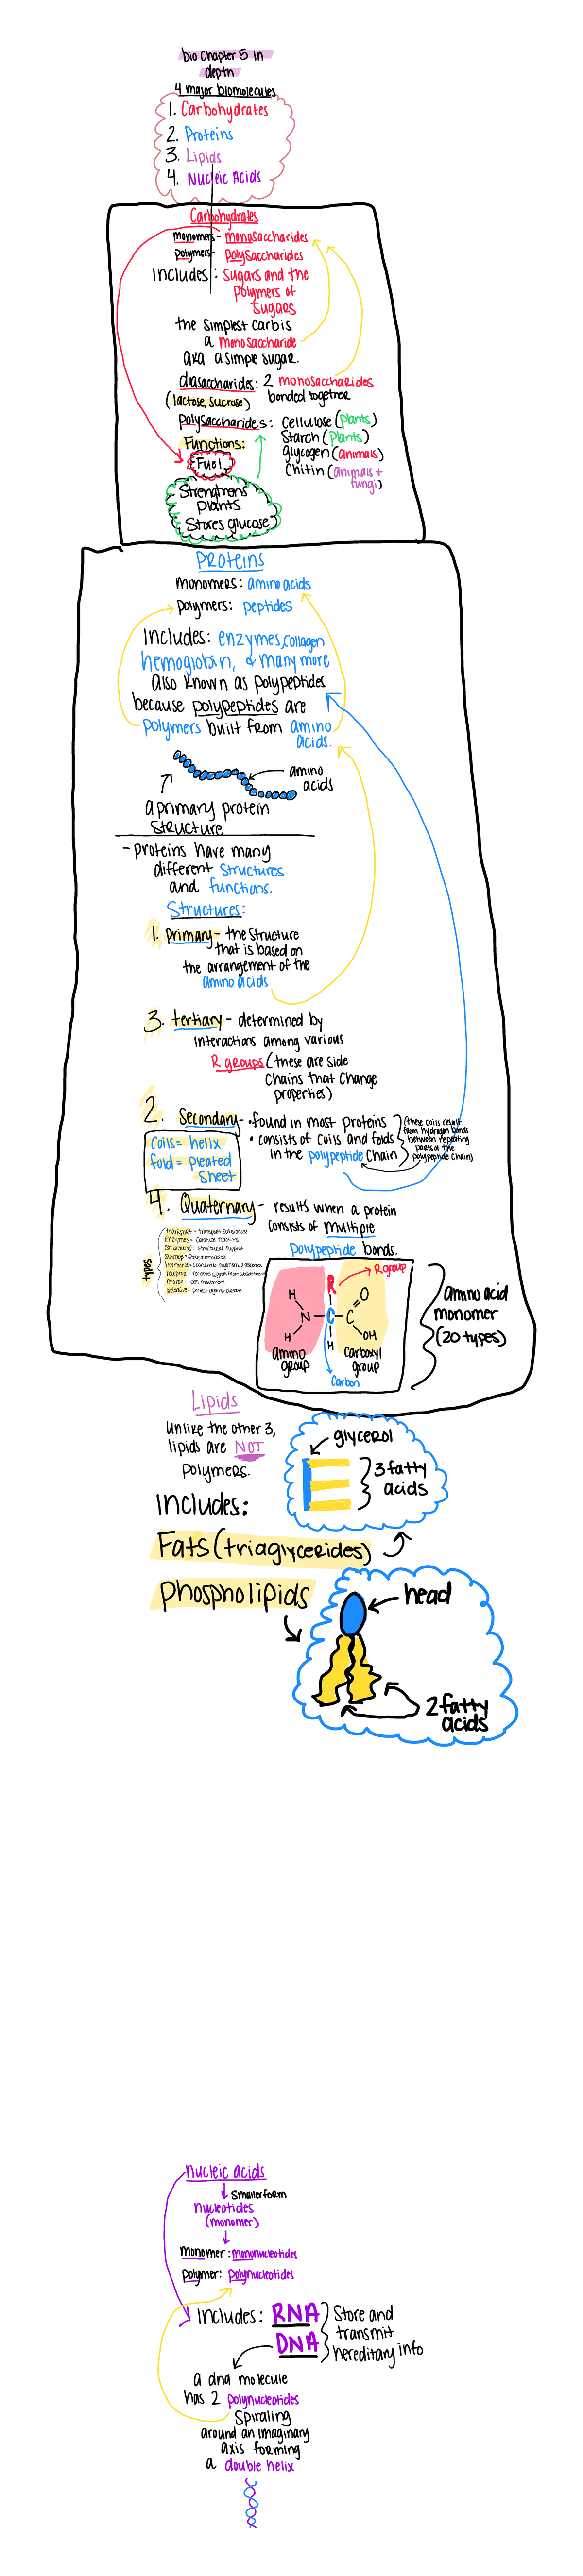 bio Chapter 5 in
depth
4 major biomolecules
1. Carbohydrates
2. Proteins
3. Lipids
4. Nucleic Acids
Carbohydrates
monomers - monosaccharides
polymers - polysaccharides
Includes: sugars and the
polymers of
sugars
the simplest carb is
a monosaccharide
aka a simple sugar.
diasaccharides: 2 monosaccharides
(lactose, sucrose) bonded together
Polysaccharides: Cellulose (plants)
Starch (plants)
glycogen (animals)
Chitin (animals +
fungi)
Functions:
Fuel
Strengthens
plants
Stores glucose
Proteins
monomers: amino acids
polymers: peptides
Includes: enzymes, collagen
hemoglobin, & many more
also known as polypeptides
because polypeptides are
polymers built from amino
acids.
amino
acids
a primary protein
structure
- proteins have many
different structures
and functions.
Structures:
1. primary - the structure
that is based on
the arrangement of the
amino acids
3. tertiary - determined by
interactions among various
R groups (these are side
chains that change
properties)
2. Secondary - • found in most proteins
• consists of coils and folds
in the polypeptide chain
(these coils result
from hydrogen bonds
between repeating
parts of the
polypeptide chain)
coils = helix
fold = pleated
sheet
4. Quaternary - results when a protein
consists of multiple
polypeptide bonds.
types
transport = transport substances
enzymes = catalyze reactions
structural = structural support
storage =
hormones = coordinate organismal responses
receptor = receives signals from outside
motor = cell movement
defensive = protect against disease
R group
H
N
H
R
C
H
C
O
OH
amino
group
carboxyl
group
Carbon
amino acid
monomer
(20 types)
Lipids
Unlike the other 3,
lipids are NOT
polymers.
Includes:
glycerol
3 fatty
acids
Fats (triaglycerides)
Phospholipids
head
2 fatty
acids
nucleic acids
smaller form
nucleotides
(monomer)
monomer: mononucleotides
polymer: polynucleotides
Includes: RNA
DNA
Store and
transmit
hereditary info
a dna molecule
has 2 polynucleotides
spiraling
around an imaginary
axis forming
a double helix